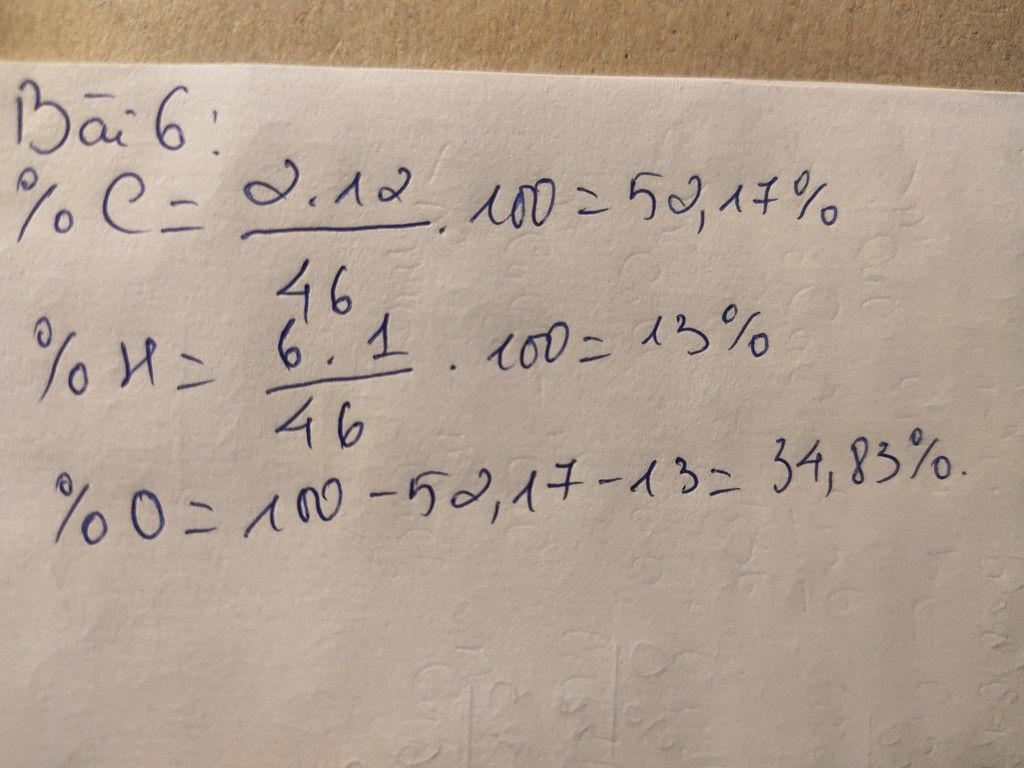 Bài 6:
% C = 2.12 . 100 = 52,17%
46
% H = 6.1 . 100 = 13%
46
% O = 100 - 52,17 - 13 = 34,83%.